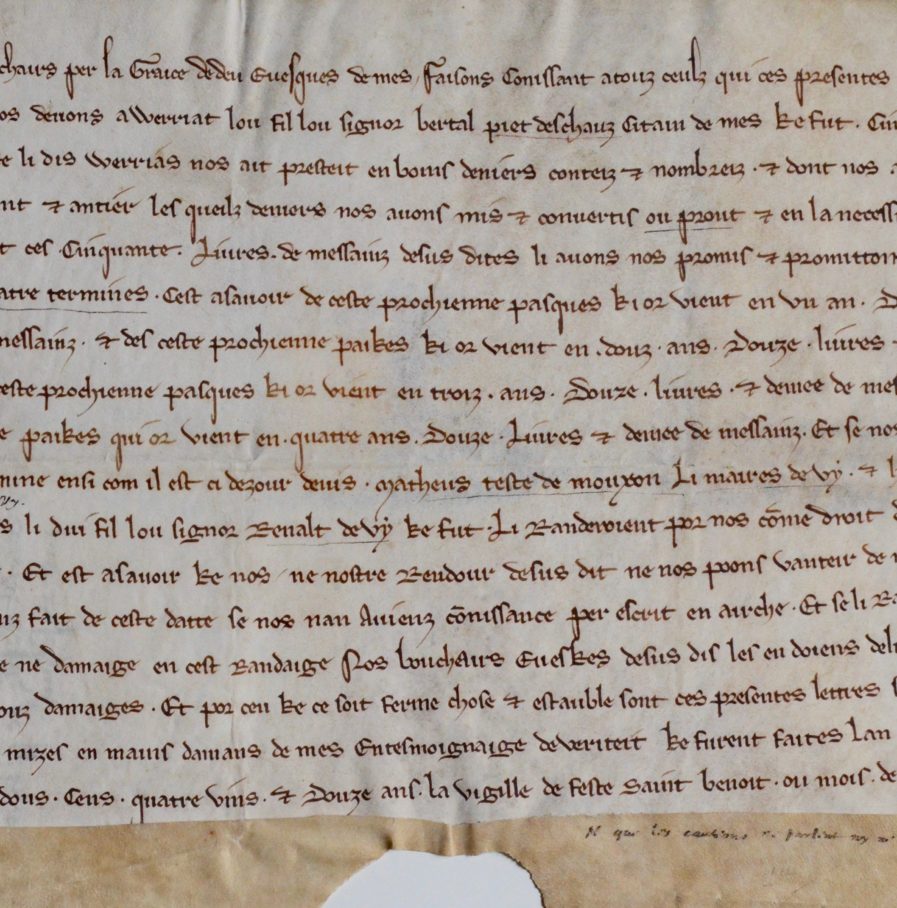 chairs per la Graice de deu Euesques de mes, Faisons Conissant atouz ceulz qui ces presentes
os deuons aWerriat lou fil lou signor bertal piet deschauz Citain de mes ke fut. Cin
e li dis Werrias nos ait presteit en boins deniers conteiz ⁊ nombreiz. ⁊ dont nos a
nt ⁊ antier les queilz deniers nos auons mis ⁊ conuertis ou prout ⁊ en la necess
t ces. Cinquante. Liures. de messainz desus dites li auons nos promis ⁊ promitton
atre termines. Cest asauoir de ceste prochienne pasques ki or vient en vn an. D
messainz. ⁊ des ceste prochienne paikes ki or vient en. douz. ans. Douze. liures
ceste prochienne pasques ki or vient en troiz. ans. Douze. liures. ⁊ demee de mes
e paikes qui or vient en. quatre ans. Douze. Liures ⁊ demee de messainz. Et se nos
mine ensi com il est ci dezour deuis. Matheus teste de mouxon Li maires de vy. ⁊
s li dui fil lou signor Renalt de vy ke fut. Li Randeroient por nos cōme droit d
. Et est asauoir ke nos ne nostre Rendour desus dit ne nos poons vanteir de
nz fait de ceste datte se nos nan Auienz cōnissance per escrit en airche. Et se li Ra
e ne damaige en cest Randaige Nos bouchairs Eueskes desus dis les en doiens del
ouz damaiges. Et por ceu ke ce soit ferme chose ⁊ estauble sont ces presentes lettres s
mizes en mains damans de mes Entesmoignaige de veriteit ke furent faites Lan
dous. Cens. quatre vins. ⁊ Douze ans. la vigille de feste saint benoit. ou mois. de
que les cautions ne parlent